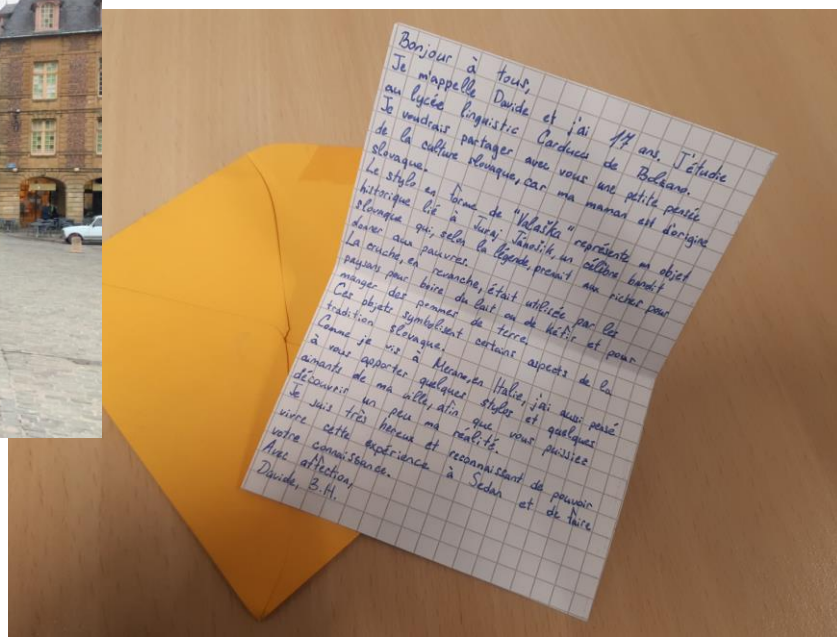 Bonjour à tous,
Je m'appelle Davide et j'ai 17 ans. J'étudie
au lycée linguistic Carducci de Bolzano.
Je voudrais partager avec vous une petite pensée
de la culture slovaque, car ma maman est d'origine
slovaque.
Le stylo en forme de "Valaška" représente un objet
historique lié à Juraj Jánošík, un célèbre bandit
slovaque qui, selon la légende, prenait aux riches pour
donner aux pauvres.
La cruche, en revanche, était utilisée par les
paysans pour boire du lait ou du kéfir et pour
manger des pommes de terre.
Ces objets symbolisent certains aspects de la
tradition slovaque.
Comme je vis à Merano, en Italie, j'ai aussi pensé
à vous apporter quelques stylos et quelques
aimants de ma ville, afin que vous puissiez
découvrir un peu ma réalité.
Je suis très hereux et reconnaissant de pouvoir
vivre cette expérience à Sedan et de faire
votre connaissance.
Avec affection,
Davide, B.H.